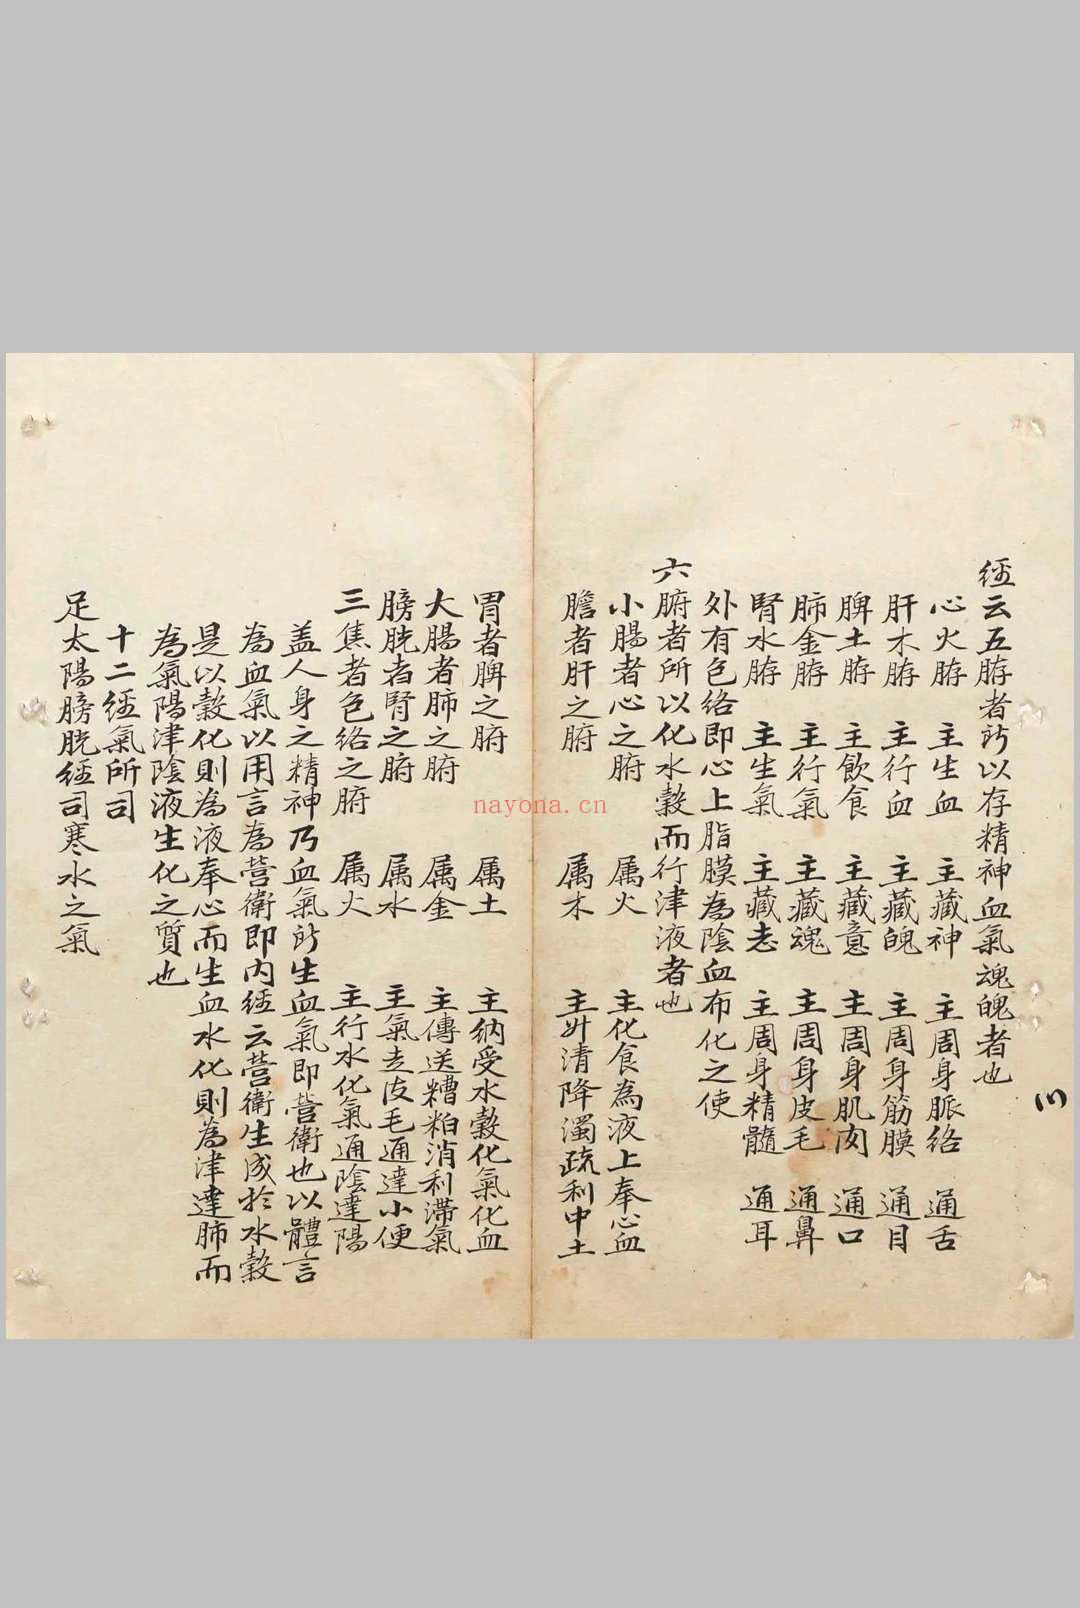 經云五脏者所以存精神血氣魂魄者也
心火脏 主生血 主藏神 主周身脈絡 通舌
肝木脏 主行血 主藏魄 主周身筋膜 通目
脾土脏 主飲食 主藏意 主周身肌肉 通口
肺金脏 主行氣 主藏魂 主周身皮毛 通鼻
腎水脏 主生氣 主藏志 主周身精髓 通耳
外有包絡即心上脂膜為陰血布化之使
六腑者所以化水穀而行津液者也
小腸者心之腑 属火 主化食為液上奉心血
膽者肝之腑 属木 主升清降濁疏利中土
胃者脾之腑 属土 主納受水穀化氣化血
大腸者肺之腑 属金 主傳送糟粕消利滯氣
膀胱者腎之腑 属水 主氣去皮毛通達小便
三焦者包絡之腑 属火 主行水化氣通陰達陽
盖人身之精神乃血氣所生血氣即營衛也以體言
為血氣以用言為營衛即內經云營衛生成於水穀
是以穀化則為液奉心而生血水化則為津達肺而
為氣陽津陰液生化之質也
十二經氣所司
足太陽膀胱經司寒水之氣
nayona.cn